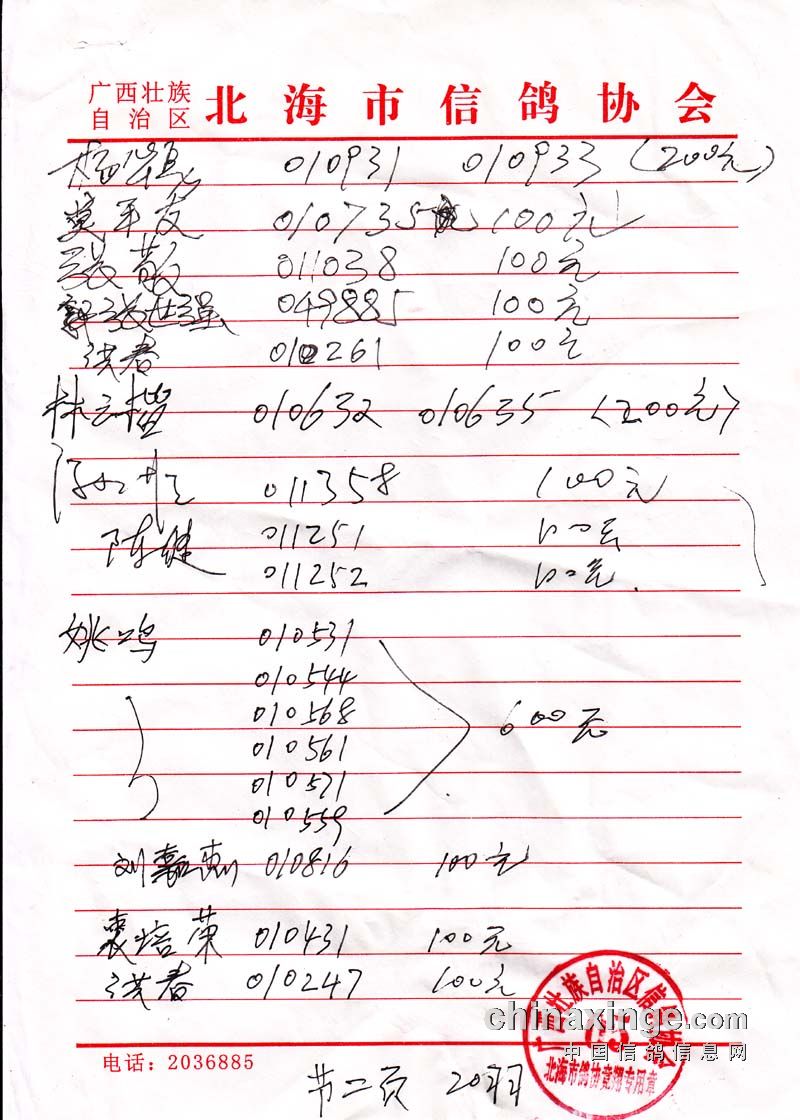 广西壮族
自治区
北海市信鸽协会
010931 010933 (200元)
莫平友 010735 100元
张敬 011038 100元
张仕强 049885 100元
洪春 010261 100元
林云楷 010632 010635 (200元)
011358 100元
陈健 011251 100元
011252 100元.
姚鸣 010531
010544
010568
010561
010571
010559
600元
刘嘉惠 010816 100元
袁焙荣 010431 100元
洪春 010247 100元
广西壮族自治区信鸽协会
05
北海市鸽协竞翔专用章
chinaxinge.com
中国信鸽信息网
电话：2036885
节二页 20羽